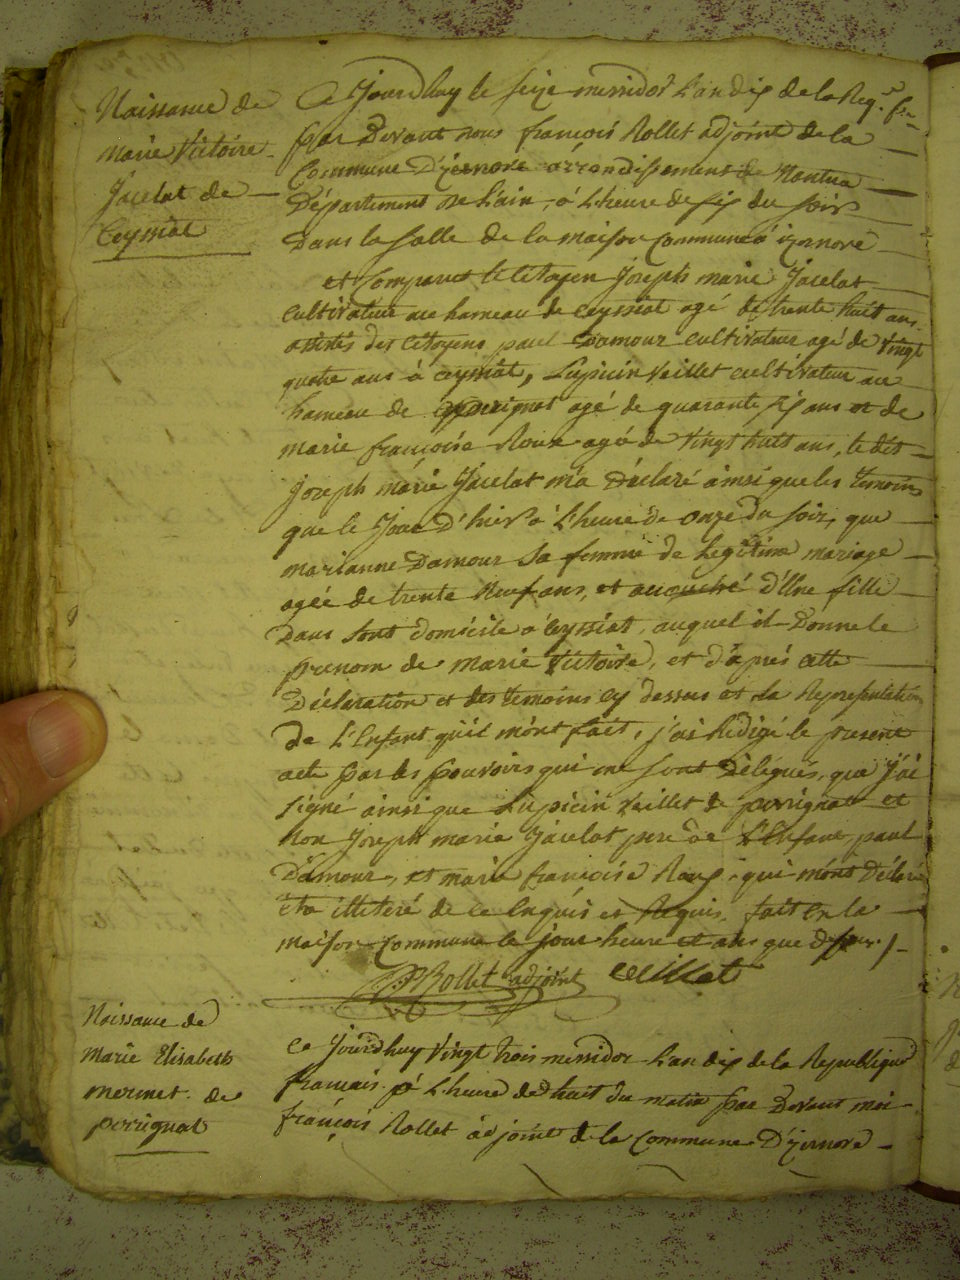 Naissance de
Marie Victoire
Jacelat de
Ceyssiat
Ce Jourdhuy le seize messidor L'an dix de la Rep.e f.se
par Devant nous françois Rollet adjoint de la
Commune D'izernore arrondissement de Nantua
Département de L'ain, á L'heure de six du soir
Dans la salle de la maison Commune á izernore
et Comparut le Citoyen Joseph marie Jacelat
cultivateur au hameau de ceyssiat agé de trente huit ans
assistés des Citoyens paul Damour cultivateur agé de Vingt
quatre ans á ceyssiat, Lupicin Veillet cultivateur au
hameau de perrignat agé de quarante six ans et de
marie françoise Roux agée de Vingt huit ans, le dit
Joseph marie Jacelat m'a Déclaré ainsi que les temoins
que le Jour D'hier á L'heure de onze du soir, que
marianne Damour sa femme de Legitime mariage
agée de trente Neuf ans, et accouché d'Une fille
Dans sont domicile á Ceyssiat, auquel il Donne le
prenom de marie Victoire, et d'aprés cette
Déclaration et des temoins cy dessus et La Representation
de L'Enfant qu'il m'ont fait, j'ai Redigé le present
acte par les pouvoirs qui me sont Délégués, que J'ai
signé ainsi que Lupicin Veillet de perrignat et
Non Joseph marie Jacelat pere de L'Enfant, paul
Damour, et marie françoise Roux, qui m'ont Déclaré
être illiteré de ce Enquis et Requis, fait En la
maison Commune le jour heure et ans que dessus /-
Rollet adjoint Veillet
Naissance de
Marie Elisabeth
mermet de
perrignat
Ce Jourdhuy Vingt trois messidor L'an dix de la Republique
francais á L'heure de huit du matin par Devant moi
françois Rollet adjoint de la Commune D'izernore